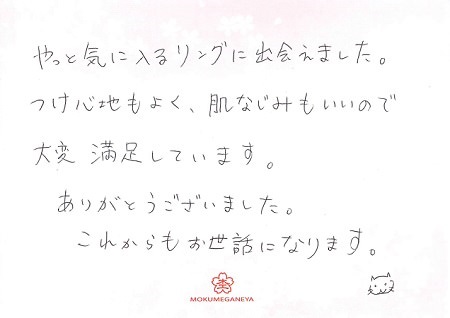 やっと気に入るリングに出会えました。
つけ心地もよく、肌なじみもいいので
大変 満足しています。
ありがとうございました。
これからもお世話になります。
MOKUMEGANEYA